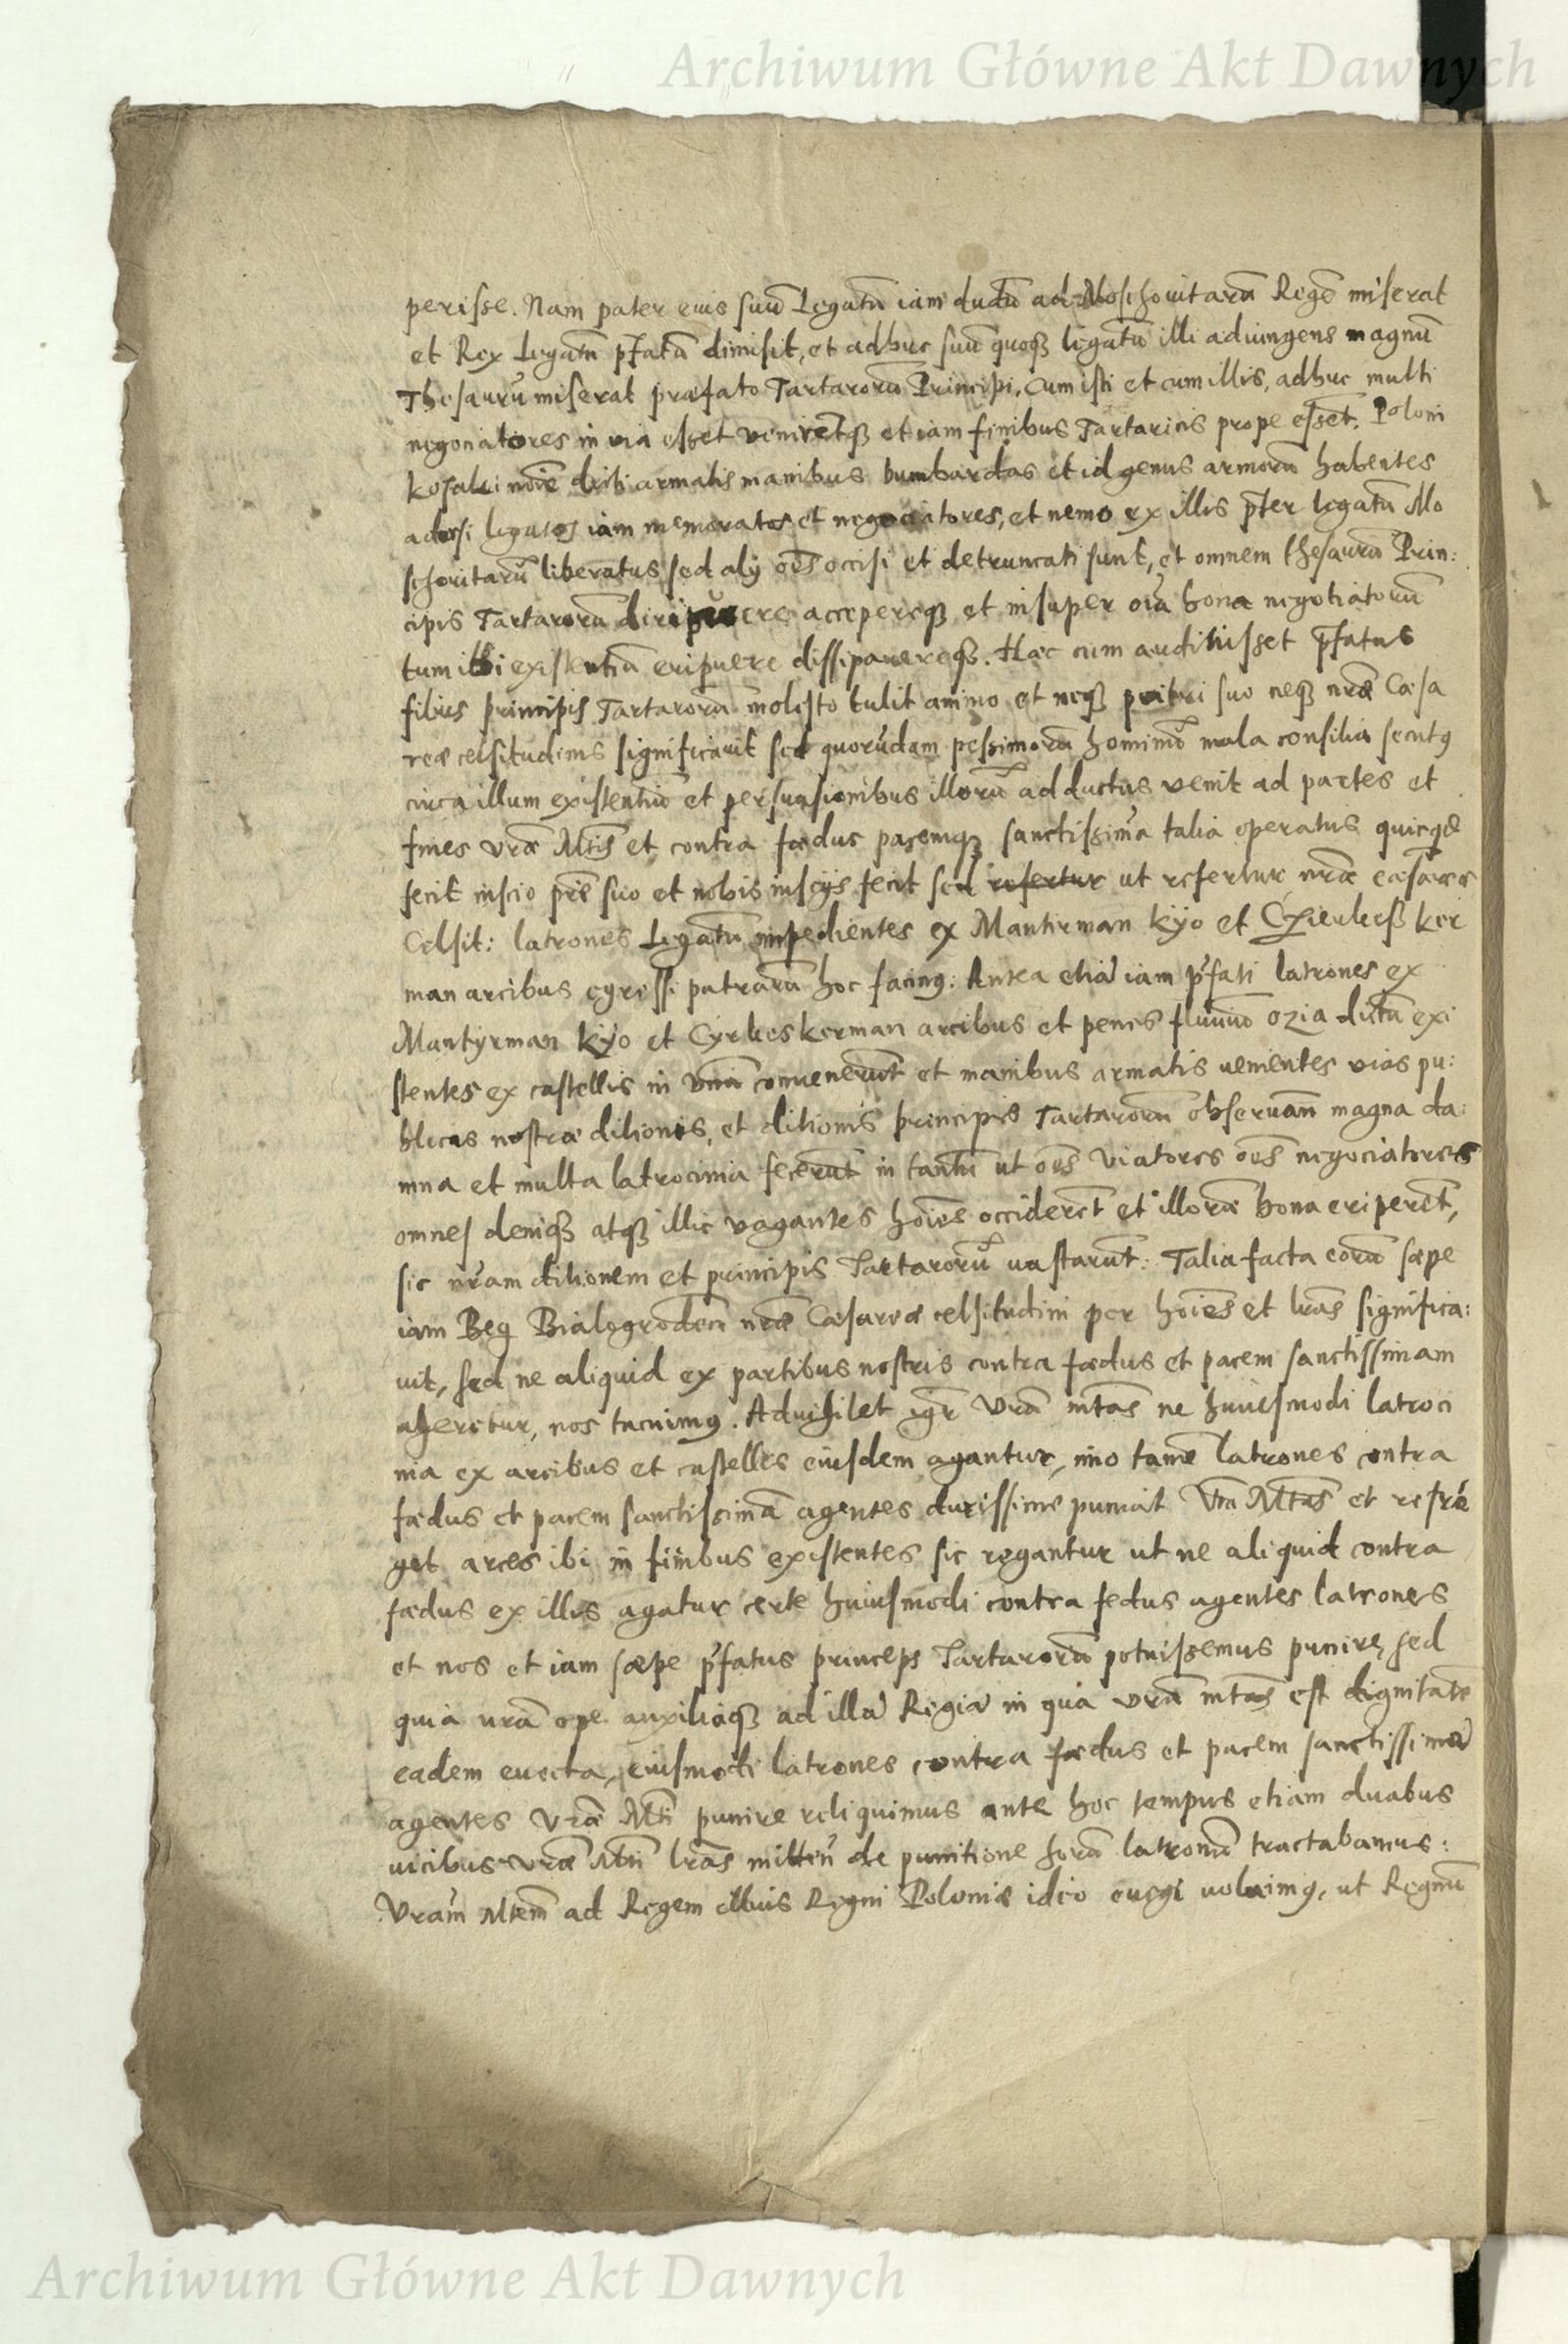 Archiwum Główne Akt Dawnych
perisse. Nam pater eius suū Legatū iam dudū ad Moschouitarū Regē miserat
et Rex Legatū p̄fatū dimisit, et adhuc suū quoqȝ legatū illi adiungens magnū
Thesaurū miserat præfato Tartarorū Principi, Cum isti et cum illis, adhuc multi
negotiatores in via esset venirētqȝ et iam finibus Tartaricis prope essēt. Poloni
kosaki noīe dicti armatis manibus bumbardas et id genus armorū habentes
legatos iam memoratos et negociatores, et nemo ex illis p̄ter legatū Mo
schouitarū liberatus sed alij oēs occisi et detruncati sunt, et omnem thesaurū Prin:
cipis Tartarorū diripuere accepereqȝ et insuper oīa bona negotiatorū
tum ibi existentiū eripuere dissipauereqȝ. Hæc cum audiuisset p̄fatus
filius principis Tartarorū molesto tulit animo et neqȝ patri suo neqȝ nr̄æ Cæsa
reæ celsitudinis significauit sed quorūdam pessimorū hominū mala consilia secutꝰ
circa illum existentiū et persuasionibus illorū adductus venit ad partes et
fines vræ Mtis et contra fœdus pacemqȝ sanctissimā talia operatus quicqd
fecit inscio pr̄e suo et nobis inscijs fecit sed refertur ut refertur nræ cæsareæ
Celsit: latrones Legatū impedientes ex Mantirman Kyo et Czierkeß ker
man arcibus egressi patrarū hoc facinꝰ: Antea etiā iam p̄fati latrones ex
Mantyrman Kyo et Cyrkeskerman arcibus et penes fluuiū Ozia dictū exi
stentes ex castellis in vnū conuenerūt et manibus armatis uenientes vias pu:
blicas nostræ ditionis, et ditionis principis Tartarorū obseruan̄ magna da:
mna et multa latrocinia fecerūt in tantū ut oēs viatores oēs negociatores
omnes deniqȝ atqȝ illic vagantes hoīes occiderēt et illorū bona eriperēt,
sic nr̄am ditionem et principis Tartarorū uastarūt: Talia facta eorū sæpe
iam Beg Bialogroden̄ nr̄æ Cæsareæ celsitudini per hoīes et lr̄as significa:
uit, sed ne aliquid ex partibus nostris contra fœdus et pacem sanctissimam
ageretur, nos tacuimꝰ. Aduigilet igr̄ Vrā mtas ne huiusmodi latroci
nia ex arcibus et castellis eiusdem agantur, imo tamē latrones contra
fœdus et pacem sanctissimā agentes durissime puniat Vrā Mtas et refrē
get arces ibi in finibus existentes sic regantur ut ne aliquid contra
fœdus ex illis agatur certe huiusmodi contra fedus agentes latrones
et nos et iam sæpe p̄fatus princeps Tartarorū potuissemus punire, sed
quia nrā ope auxilioqȝ ad illā Regiā in qua vrā mtas est dignitatē
eadem euecta, eiusmodi latrones contra fœdus et pacem sanctissimā
agentes Vræ Mti punire reliquimus ante hoc tempus etiam duabus
uicibus vræ Mti lr̄as mitten̄ de punitione horū latronū tractabamus:
Vram̄ Mtem ad Regem illius Regni Poloniæ ideo euegi uoluimꝰ, ut Regnū
Archiwum Główne Akt Dawnych